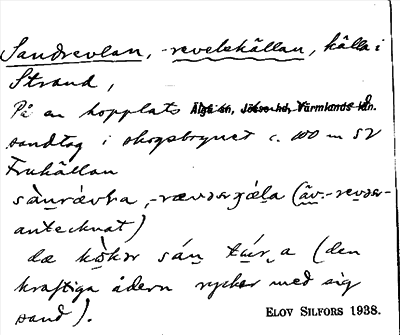 Sandrevlan, -revelskällan, källa i
Strand,
På en hopplats Älgå sn, Jösse hd, Värmlands län.
sandtag i skogsbrynet c. 100 m SV
Frukällan
(äv. -revər-
antecknat)
dæ kòkər sán (den
kraftiga ådern rycker med sig
sand).
ELOV SILFORS 1938.